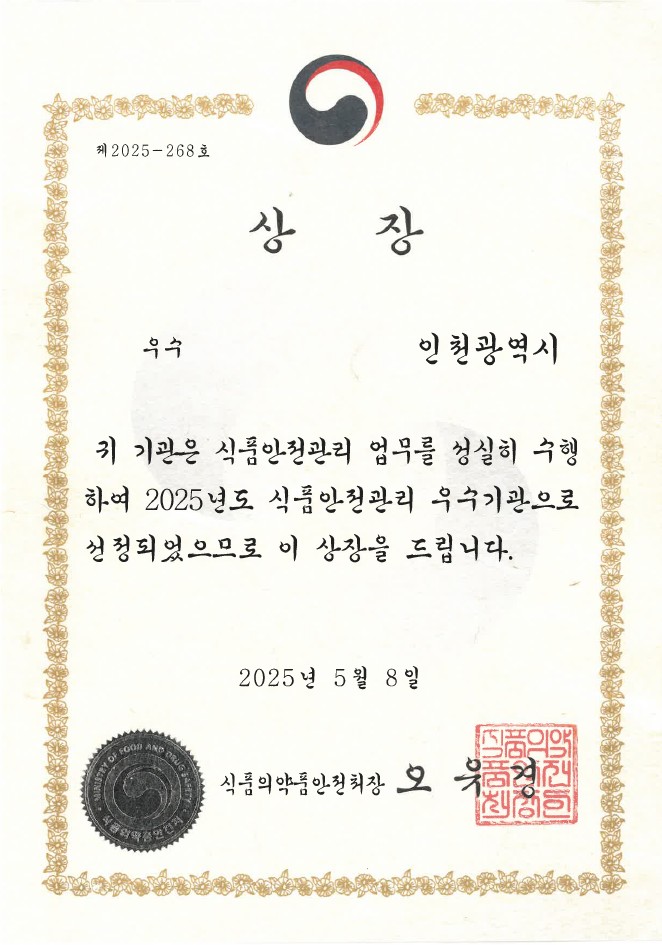 제2025-268호
상 장
우수 인천광역시
귀 기관은 식품안전관리 업무를 성실히 수행
하여 2025년도 식품안전관리 우수기관으로
선정되었으므로 이 상장을 드립니다.
2025년 5월 8일
식품의약품안전처장 오유경
MINISTRY OF FOOD AND DRUG SAFETY
식품의약품안전처